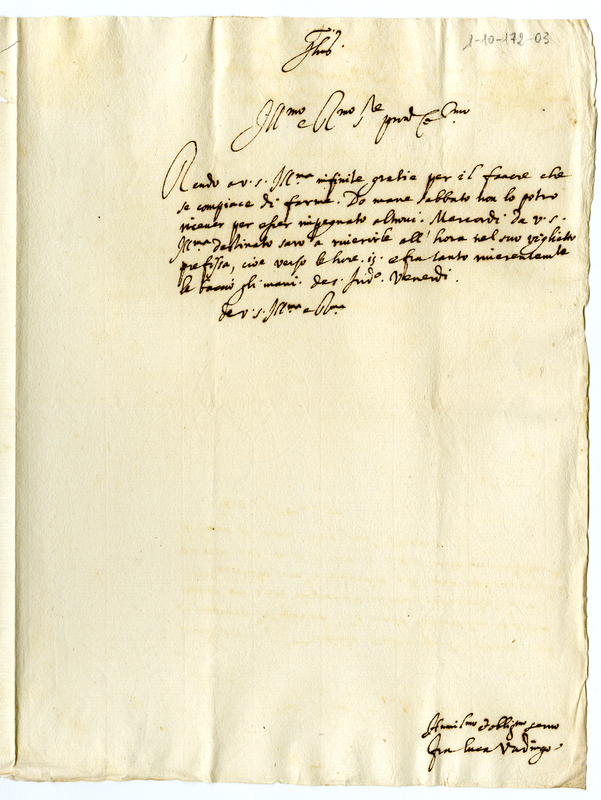 Jhs.
1-10-172-03
Ill.mo e R.mo S.re
Rendo a v. s. Ill.ma infinite gratie per il favore che
se compiace di farme. Do mane sabbato non lo potro
ricever per esser impegnato altrove. Mercordi da v. s.
Ill.ma destinato saro a riverirle all' hora nel suo viglietto
prefissa, cioe verso le hore e fra tanto riverentemente
le bacio gli mani. Venerdi.
De v. s. Ill.ma e R.ma
Humil.mo et oblig.mo servo
Fra Luca Vadingo